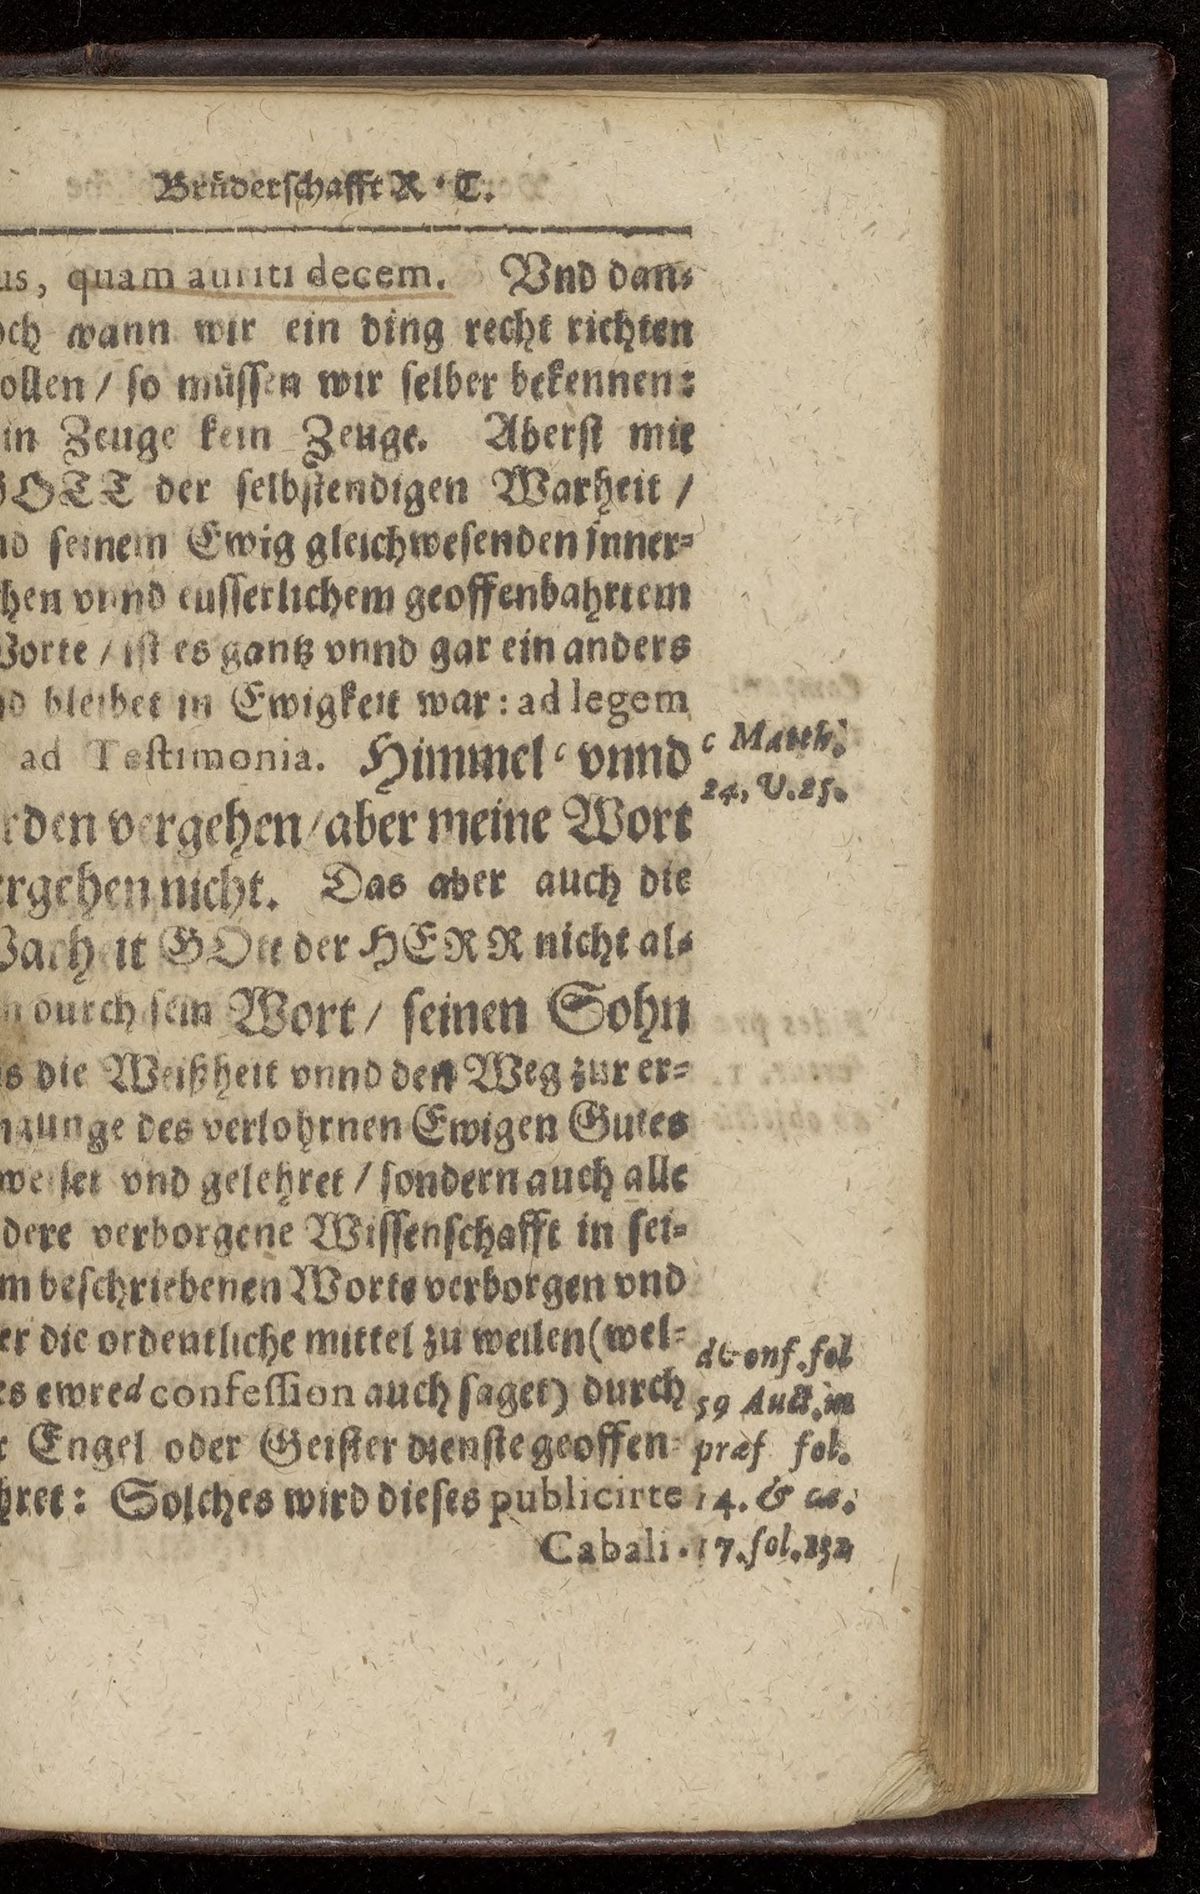 Brüderschafft R. C.
us, quam auriti decem. Vnd dan-
och wann wir ein ding recht richten
ollen / so müssen wir selber bekennen:
in Zeuge kein Zeuge. Aberst mit
GOTT der selbstendigen Warheit /
nd seinem Ewig gleichwesenden inner-
hen vnnd eusserlichem geoffenbahrtem
Worte / ist es gantz vnnd gar ein anders
nd bleibet in Ewigkeit war: ad legem
ad Testimonia. Himmel c vnnd
rden vergehen / aber meine Wort
ergehen nicht. Das aber auch die
Warheit GOtt der HERR nicht al-
n durch sein Wort / seinen Sohn
s die Weißheit vnnd den Weg zur er-
ngunge des verlohrnen Ewigen Gutes
weiset vnd gelehret / sondern auch alle
dere verborgene Wissenschafft in sei-
m beschriebenen Worte verborgen vnd
er die ordentliche mittel zu weilen (wel-
es ewre d confession auch saget) durch
r Engel oder Geister dienste geoffen-
hret: Solches wird dieses publicirte
Cabali-
c Matth.
24, V. 25.
d Conf. fol
59 Auct. in
præf fol.
14. & ca.
17. fol. 232